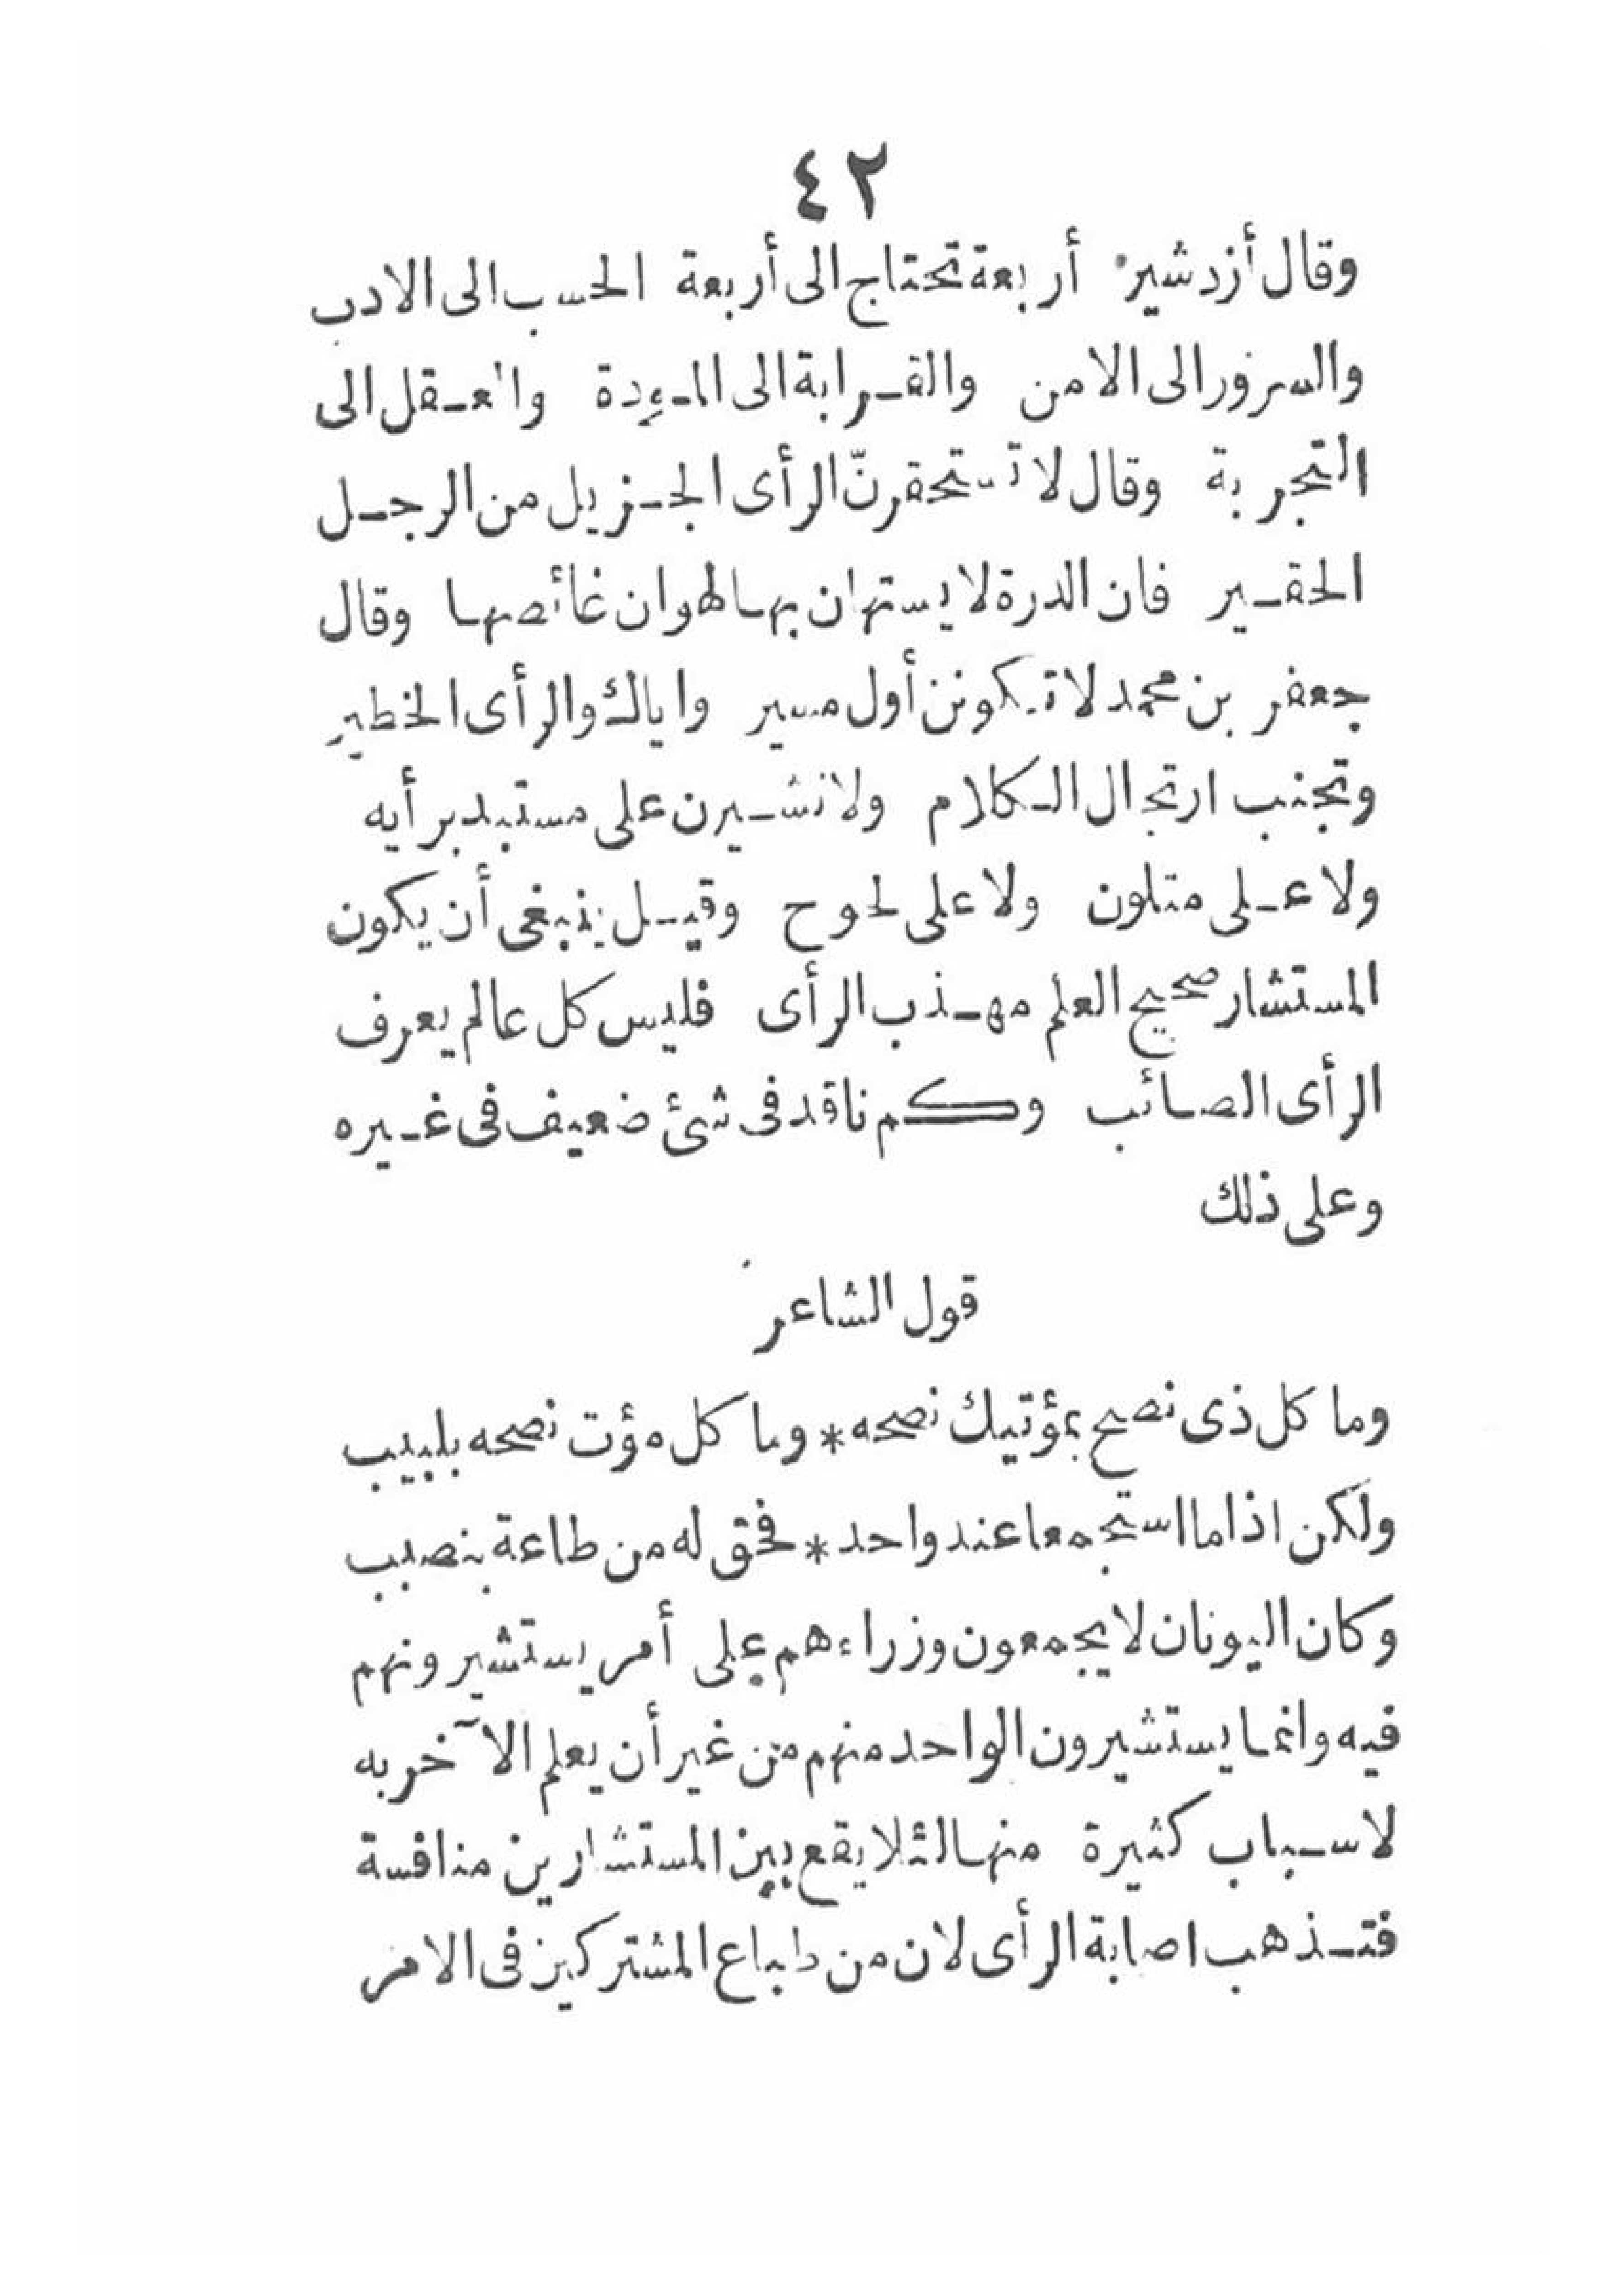 ٤٢
وقال أزدشير أربعة تحتاج الى أربعة الحسب الى الادب
والسرور الى الامن والقرابة الى المودة والعقل الى
التجربة وقال لا تستحقرنّ الرأى الجزيل من الرجل
الحقير فان الدرة لا يستهان بها لهوان غائصها وقال
جعفر بن محمد لا تكونن أول مسير واياك والرأى الخطير
وتجنب ارتجال الكلام ولا تشيرن على مستبد برأيه
ولا على متلون ولا على لحوح وقيل ينبغى أن يكون
المستشار صحيح العلم مهذب الرأى فليس كل عالم يعرف
الرأى الصائب وكم ناقد فى شئ ضعيف فى غيره
وعلى ذلك
قول الشاعر
وما كل ذى نصح بمؤتيك نصحه * وما كل مؤت نصحه بلبيب
ولكن اذا ما استجمعا عند واحد * فحق له من طاعة بنصيب
وكان اليونان لا يجمعون وزراءهم على أمر يستشيرونهم
فيه وانما يستشيرون الواحد منهم من غير أن يعلم الآخر به
لاسباب كثيرة منها لئلا يقع بين المستشارين منافسة
فتذهب اصابة الرأى لان من طباع المشتركين فى الامر